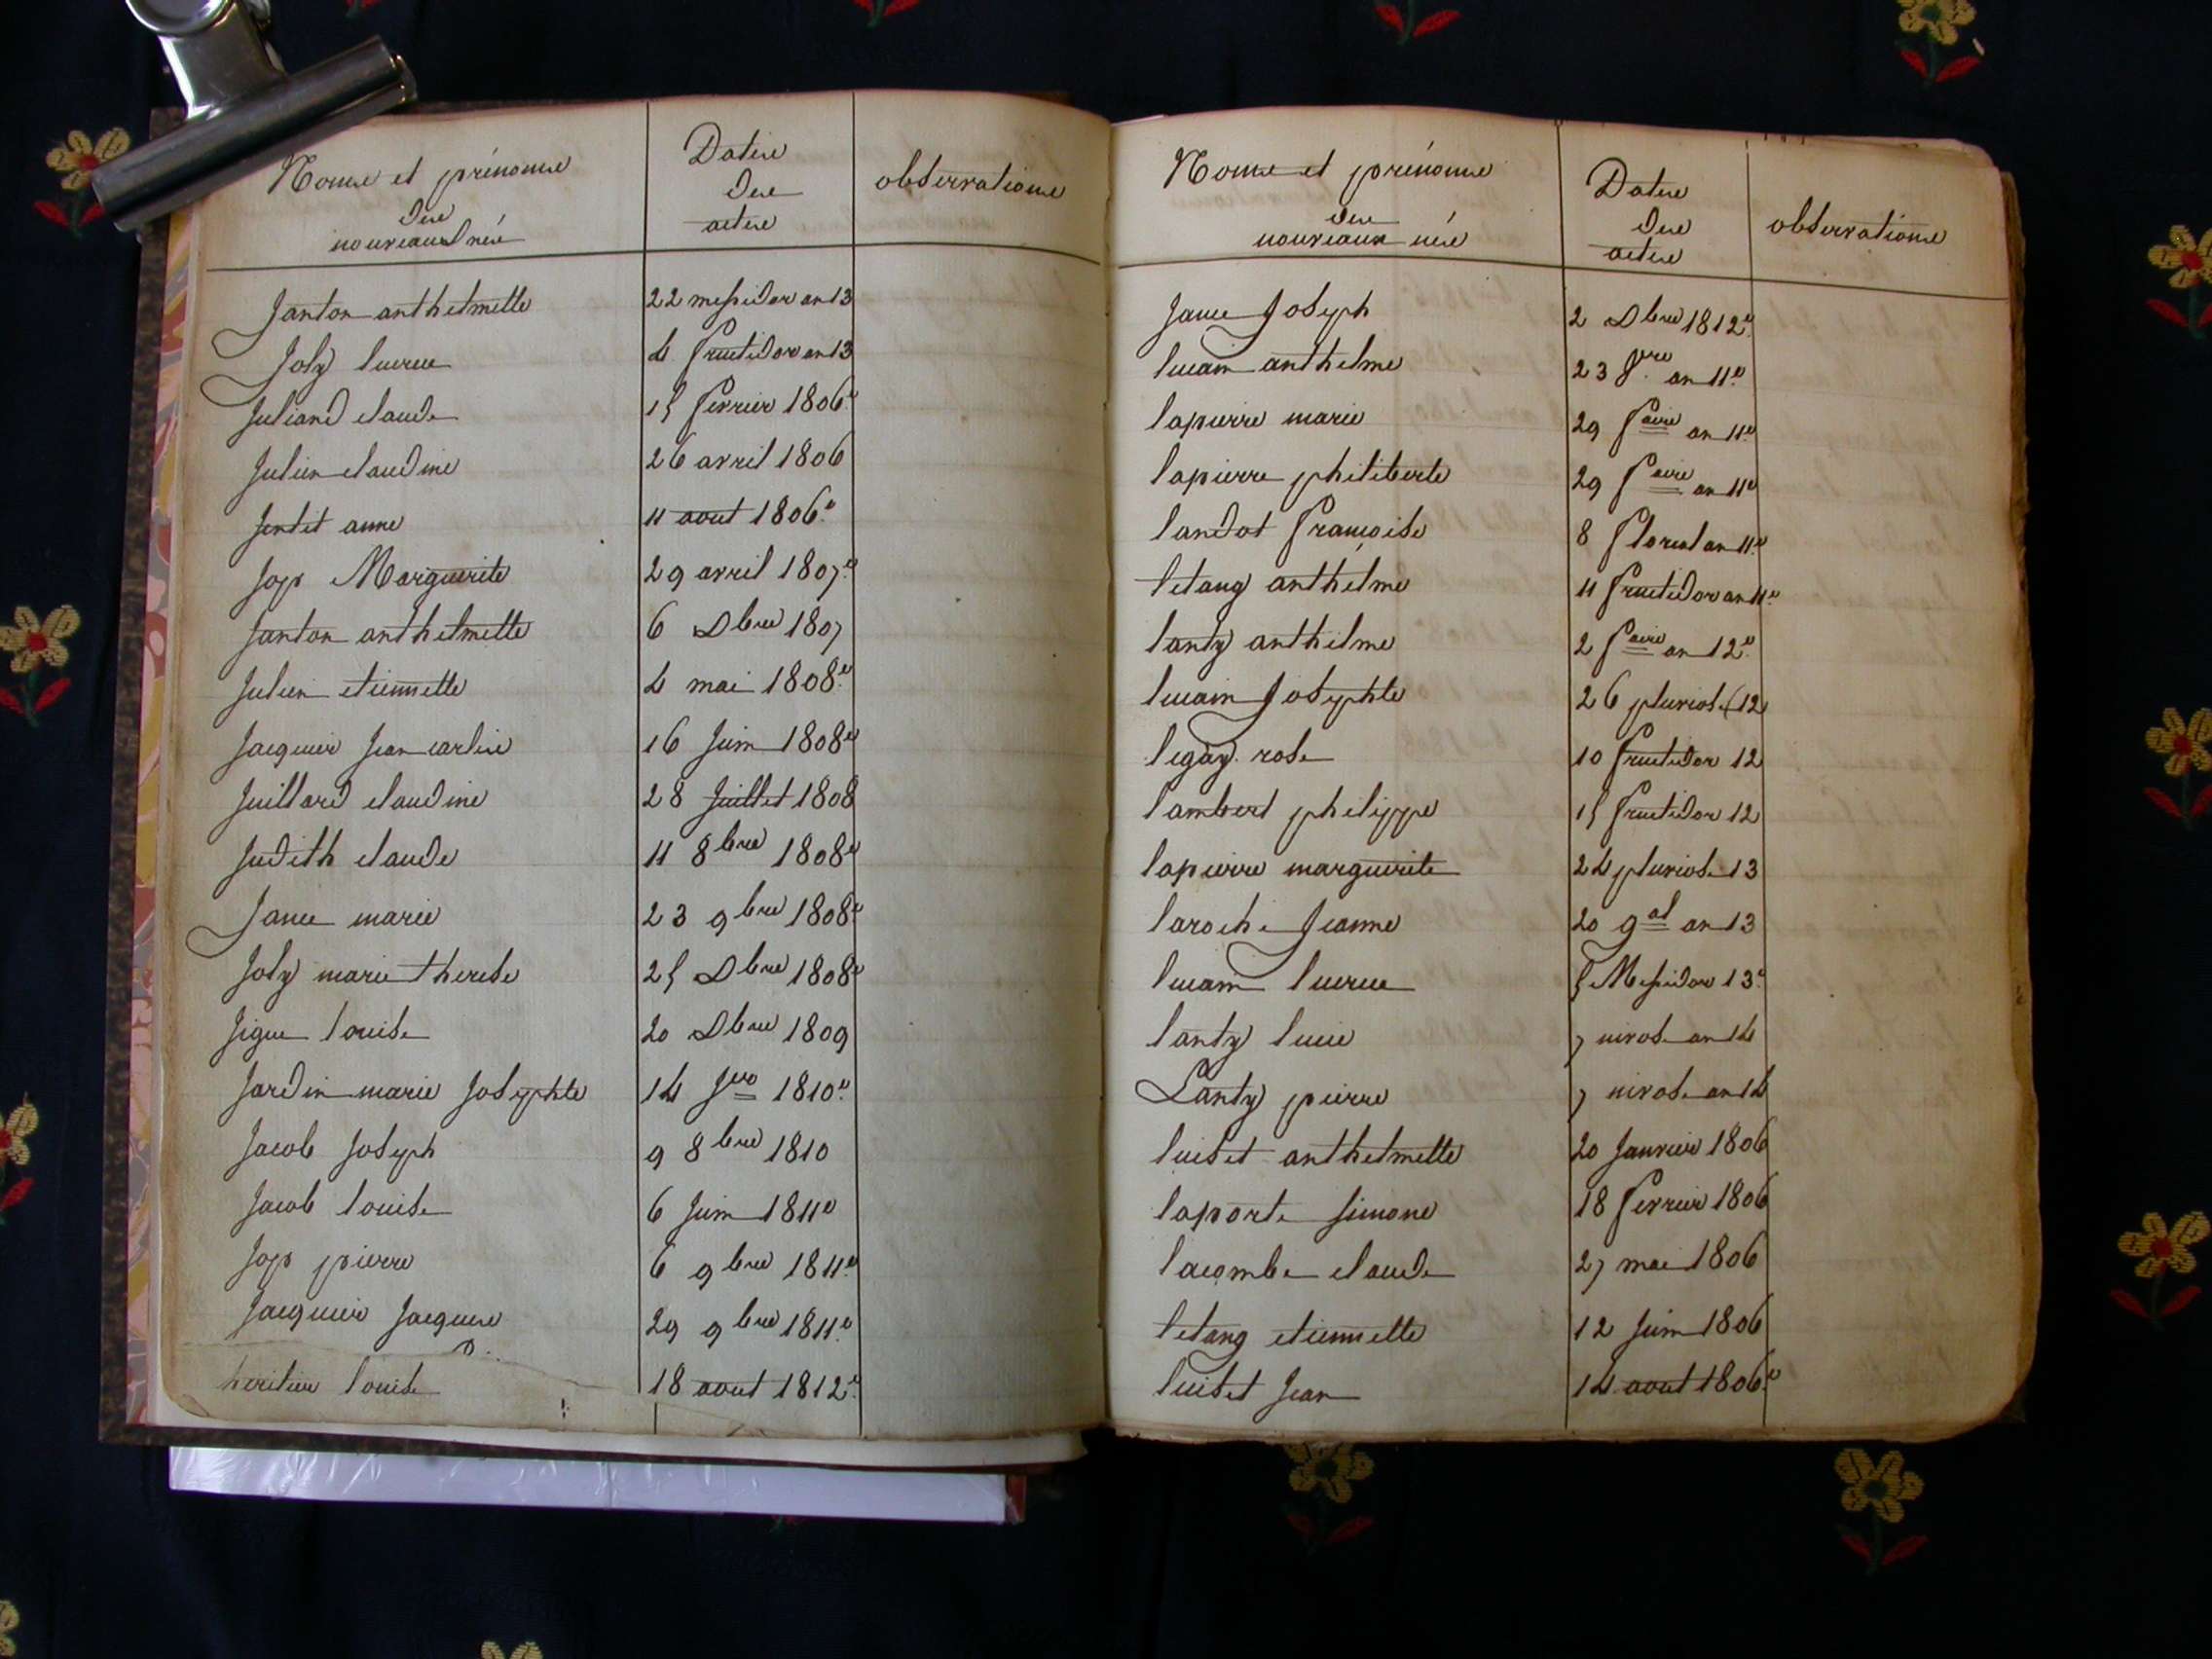 Noms et prénoms
des
nouveaux nés
Dates
des
actes
observations
Janton anthelmette 22 messidor an 13
Joly lucrece 4 fructidor an 13
Juliand claude 15 fevrier 1806
Julien claudine 26 avril 1806
Jentet anne 11 aout 1806
Jop Marguerite 29 avril 1807
Janton anthelmette 6 Dbre 1807
Julien etiennette 4 mai 1808
Jacquier Jean carlin 16 Juin 1808
Juillard claudine 28 Juillet 1808
Judith claude 11 8bre 1808
Jance marie 23 9bre 1808
Joly marie therese 25 Dbre 1808
louise 20 Dbre 1809
Jardin marie Josephte 14 Jer 1810
Jacob Joseph 9 8bre 1810
Jacob louise 6 Juin 1811
Jop pierre 6 9bre 1811
Jacquier Jacques 29 9bre 1811
heritier louise 18 aout 1812
Noms et prénoms
des
nouveaux nés
Dates
des
actes
observations
Jance Joseph 2 Dbre 1812
lucain anthelme 23 an 11
lapierre marie 29 faire an 11
lapierre philiberte 29 faire an 11
landot françoise 8 floreal an 11
letang anthelme 11 fructidor an 11
lanty anthelme 2 faire an 12
lucain Josephte 26 pluviose 12
legay rose 10 fructidor 12
lambert philippe 15 fructidor 12
lapierre marguerite 24 pluviose 13
laroche Jeanne 20 gal an 13
lucain lucrece 5 Messidor 13
lanty lucie 7 nivose an 14
Lanty pierre 7 nivose an 14
luiset anthelmette 20 Janvier 1806
laporte simone 18 fevrier 1806
lacombe claude 27 mai 1806
letang etiennette 12 Juin 1806
luiset Jean 14 aout 1806